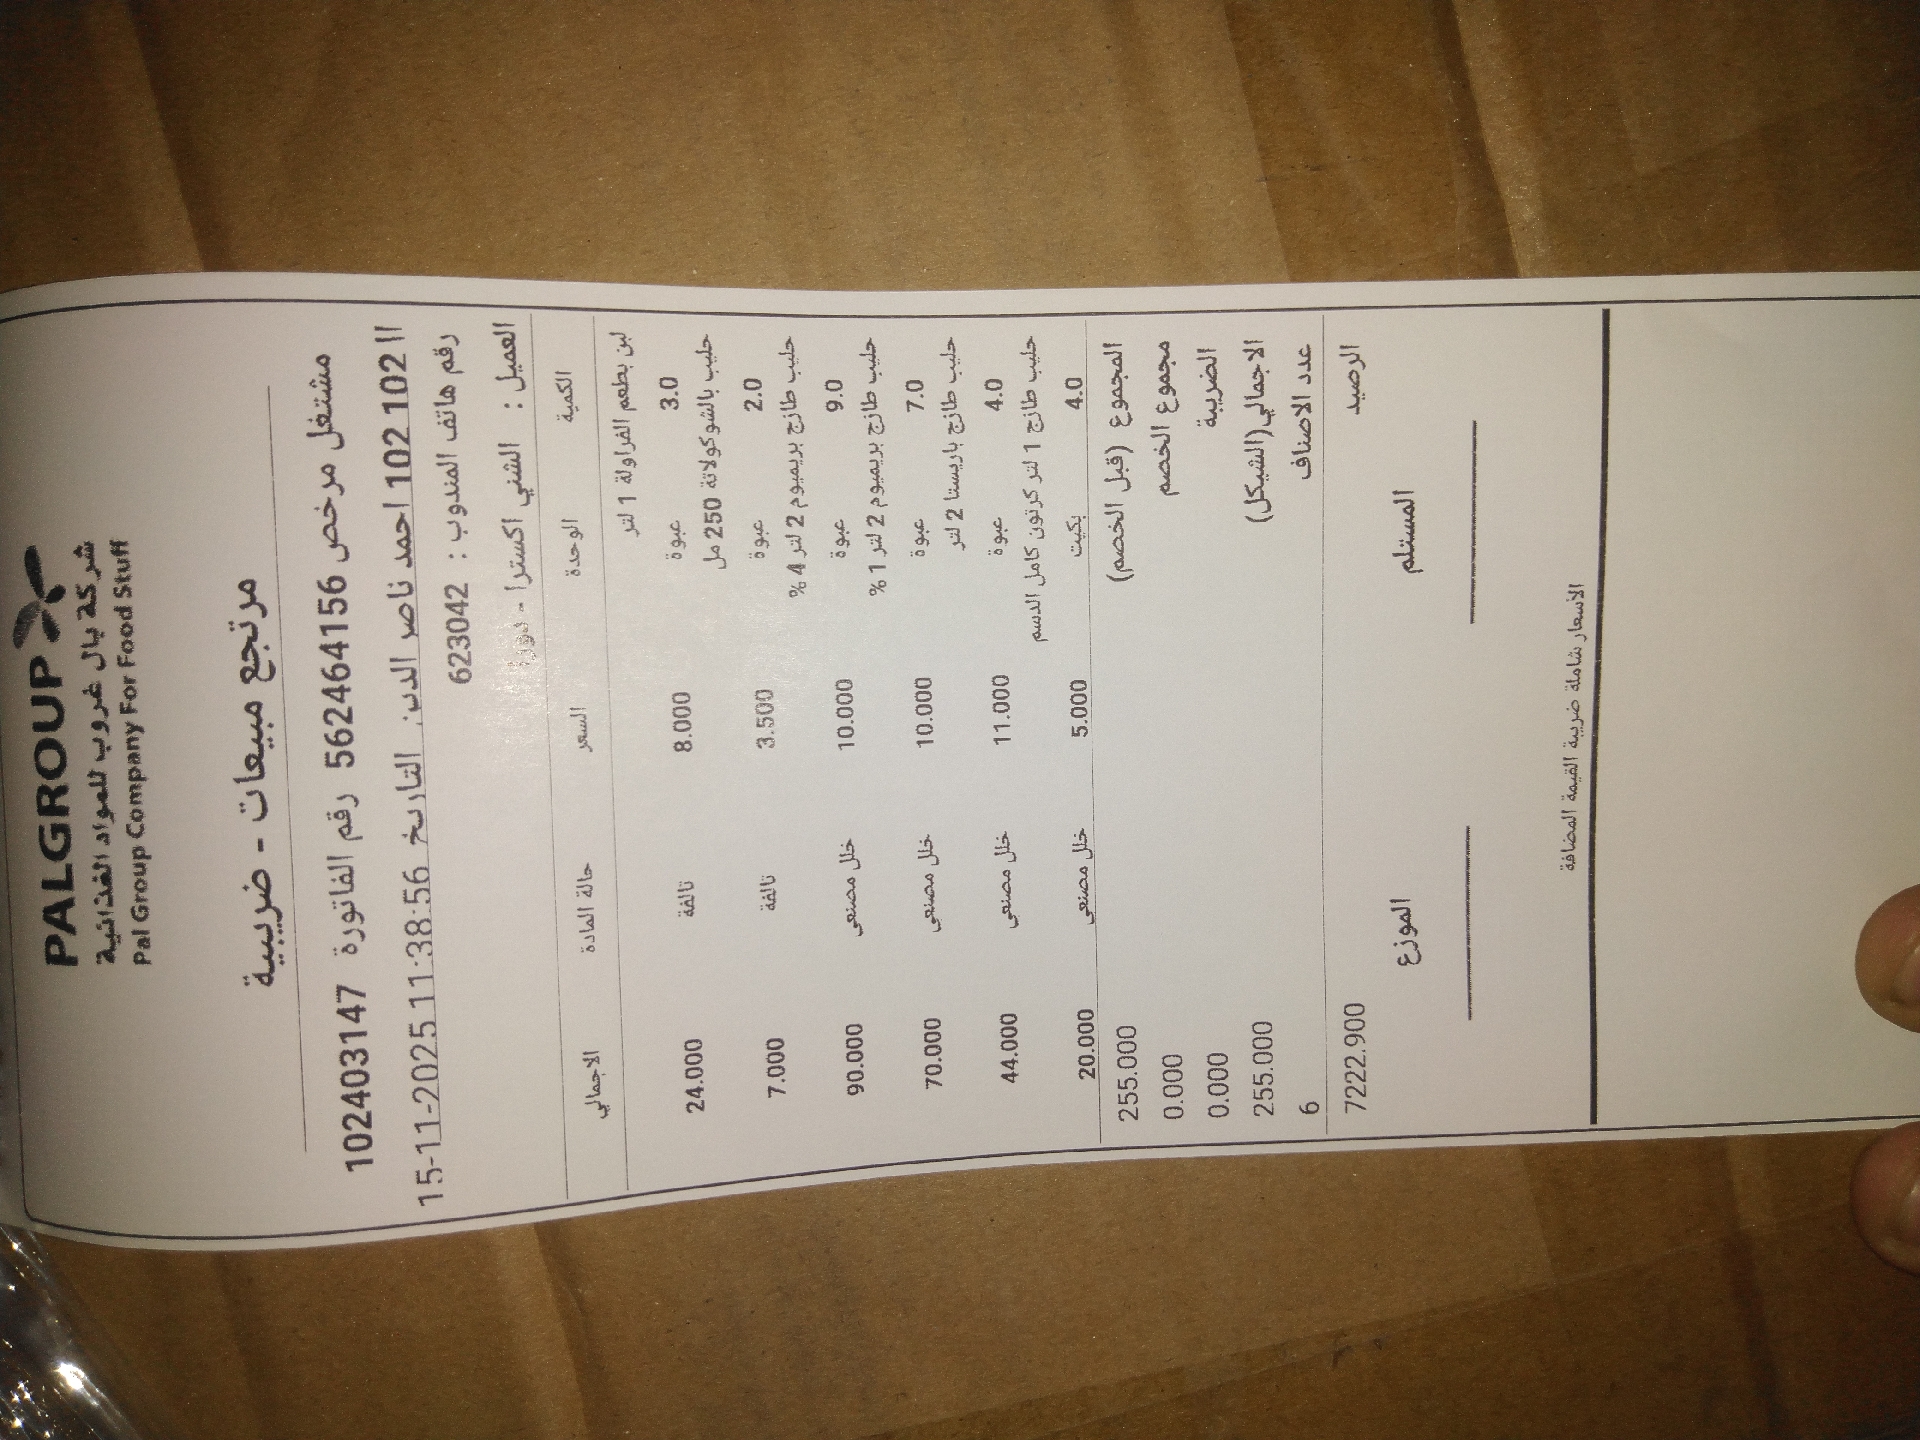 PALGROUP
شركة بال غروب للمواد الغذائية
Pal Group Company For Food Stuff
مرتجع مبيعات - ضريبية
مشتغل مرخص 562464156 رقم الفاتورة 102403147
102 102 احمد ناصر الدين التاريخ 15-11-2025 11:38:56
رقم هاتف المندوب : 623042
العميل : الشني اكسترا - دورا
الكمية الوحدة السعر حالة المادة الاجمالي
لبن بطعم الفراولة 1 لتر
3.0 عبوة 8.000 تالفة 24.000
حليب بالشوكولاتة 250 مل
2.0 عبوة 3.500 تالفة 7.000
حليب طازج بريميوم 2 لتر 4 %
9.0 عبوة 10.000 خلل مصنعي 90.000
حليب طازج بريميوم 2 لتر 1 %
7.0 عبوة 10.000 خلل مصنعي 70.000
حليب طازج باريستا 2 لتر
4.0 عبوة 11.000 خلل مصنعي 44.000
حليب طازج 1 لتر كرتون كامل الدسم
4.0 بكيت 5.000 خلل مصنعي 20.000
المجموع (قبل الخصم) 255.000
مجموع الخصم 0.000
الضريبة 0.000
الاجمالي(الشيكل) 255.000
عدد الاصناف 6
الرصيد 7222.900
المستلم الموزع
الأسعار شاملة ضريبة القيمة المضافة